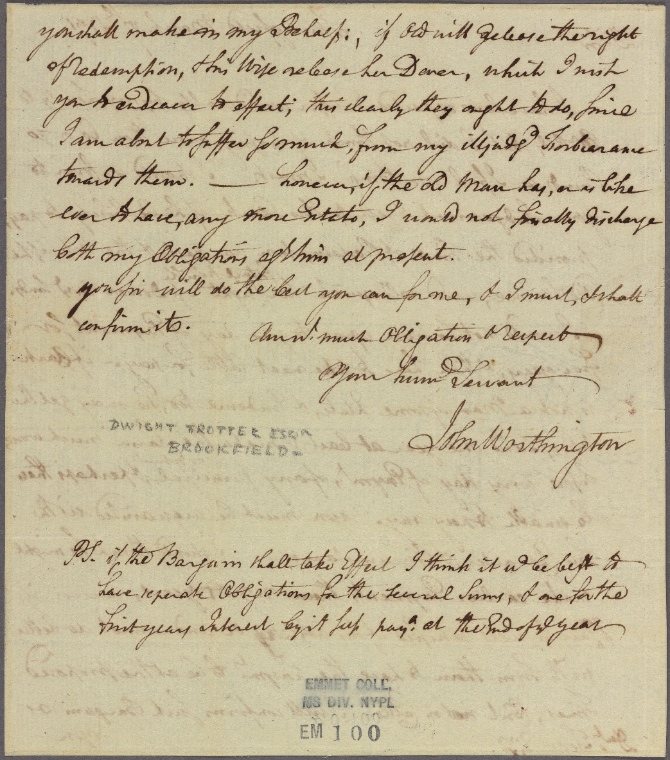 you shall make in my Behalf:, if Old will release the right
of redemption, & his Wife release her Dower, which I wish
you to endeavor to effect; this clearly they ought to do, since
I am about to suffer so much, from my illjudgd Forbearance
towards them. — however, if the Old Man has, or is like
ever to have, any more Estate, I would not finally discharge
both my Obligations agt him at present.
you sir will do the best you can for me, & I must, & shall
confirm it.
Am wt. much Obligation & respect
Your hume Servant
John Worthington
DWIGHT TROTTER ESQR
BROOKFIELD
PS. if the Bargain shall take Effect I think it wd be best to
have seperate Obligations for the several Sums, & one for the
first years Interest by it self paya. at the End of ye year
EMMET COLL.
MS DIV. NYPL
EM 100